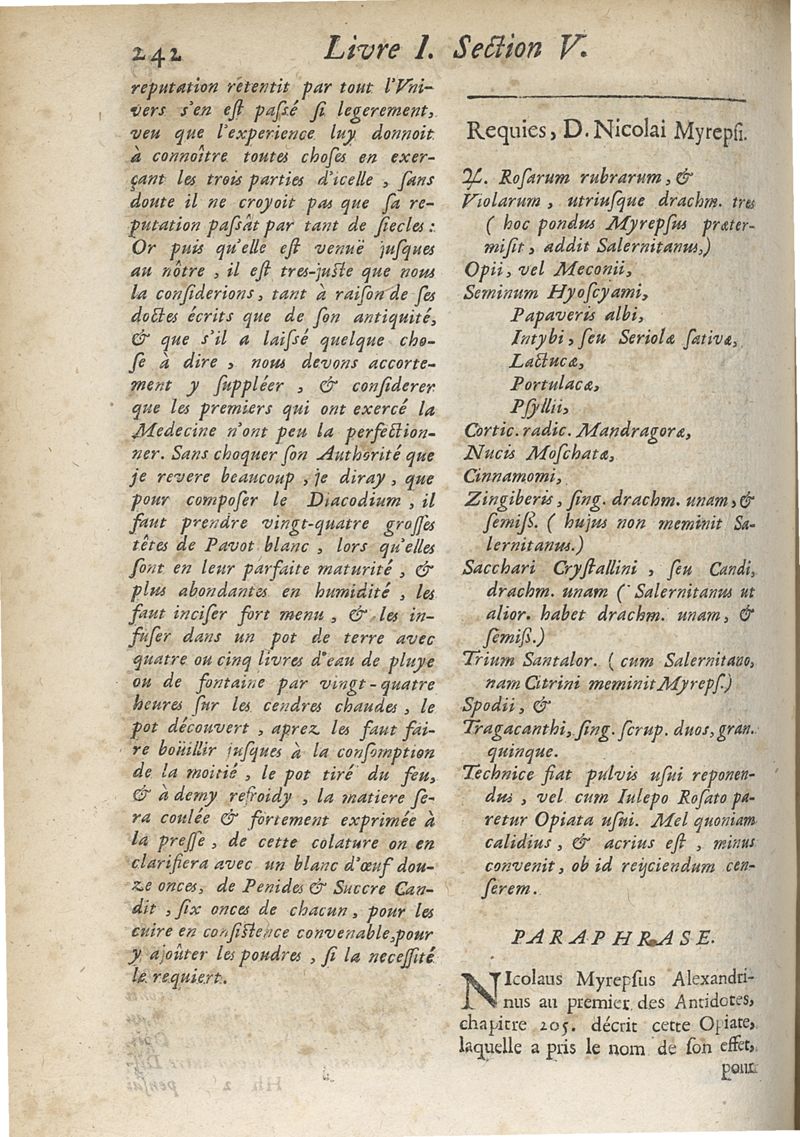 242 Livre I. Section V.
reputation retentit par tout l'Vni-
vers s'en eſt paſſé ſi legerement,
veu que l'experience luy donnoit
à connoître toutes choſes en exer-
çant les trois parties d'icelle, ſans
doute il ne croyoit pas que ſa re-
putation paſsât par tant de ſiecles:
Or puis qu'elle eſt venuë juſques
au nôtre, il eſt tres-juſte que nous
la conſiderions, tant à raiſon de ſes
doctes écrits que de ſon antiquité,
& que s'il a laiſſé quelque cho-
ſe à dire, nous devons accorte-
ment y ſuppléer, & conſiderer
que les premiers qui ont exercé la
Medecine n'ont peu la perfection-
ner. Sans choquer ſon Authorité que
je revere beaucoup, je diray, que
pour compoſer le Diacodium, il
faut prendre vingt-quatre groſſes
têtes de Pavot blanc, lors qu'elles
ſont en leur parfaite maturité, &
plus abondantes en humidité, les
faut inciſer fort menu, & les in-
fuſer dans un pot de terre avec
quatre ou cinq livres d'eau de pluye
ou de fontaine par vingt-quatre
heures ſur les cendres chaudes, le
pot découvert, aprez les faut fai-
re boüillir juſques à la conſomption
de la moitié, le pot tiré du feu,
& à demy refroidy, la matiere ſe-
ra coulée & fortement exprimée à
la preſſe, de cette colature on en
clarifiera avec un blanc d'œuf dou-
ze onces, de Penides & Succre Can-
dit, ſix onces de chacun, pour les
cuire en conſiſtence convenable, pour
y ajoûter les poudres, ſi la neceſſité
le requiert.
Requies, D. Nicolai Myrepſi.
℞. Roſarum rubrarum, &
Violarum, utriuſque drachm. tres
( hoc pondus Myrepſus præter-
miſit, addit Salernitanus,)
Opii, vel Meconii,
Seminum Hyoſcyami,
Papaveris albi,
Intybi, ſeu Seriolæ ſativæ,
Lactucæ,
Portulacæ,
Pſyllii,
Cortic. radic. Mandragoræ,
Nucis Moſchatæ,
Cinnamomi,
Zingiberis, ſing. drachm. unam, &
ſemiß. ( hujus non meminit Sa-
lernitanus.)
Sacchari Cryſtallini, ſeu Candi,
drachm. unam ( Salernitanus ut
alior. habet drachm. unam, &
ſemiß.)
Trium Santalor. ( cum Salernitano,
nam Citrini meminit Myrepſ.)
Spodii, &
Tragacanthi, ſing. ſcrup. duos, gran.
quinque.
Technice fiat pulvis uſui reponen-
dus, vel cum Iulepo Roſato pa-
retur Opiata uſui. Mel quoniam
calidius, & acrius eſt, minus
convenit, ob id reijciendum cen-
ſerem.
PARAPHRASE.
NIcolaus Myrepſus Alexandri-
nus au premier des Antidotes,
chapitre 205. décrit cette Opiate,
laquelle a pris le nom de ſon effet,
pour